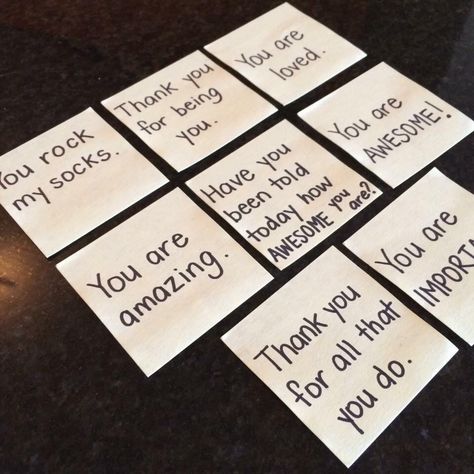 You are
loved.
Thank you
for being
you.
You are
AWESOME!
You rock
my socks.
Have you
been told
today how
AWESOME you
are?
You are
amazing.
You are
Thank you
for all that
you do.